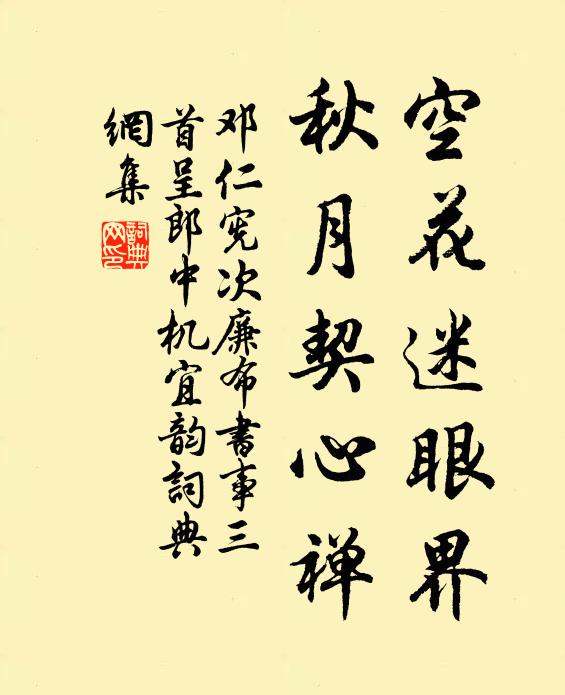 空花迷眼界
秋月契心禅
邓仁宪次廉布书事三
首呈郎中机宜韵詞典
網集
詞典
网印